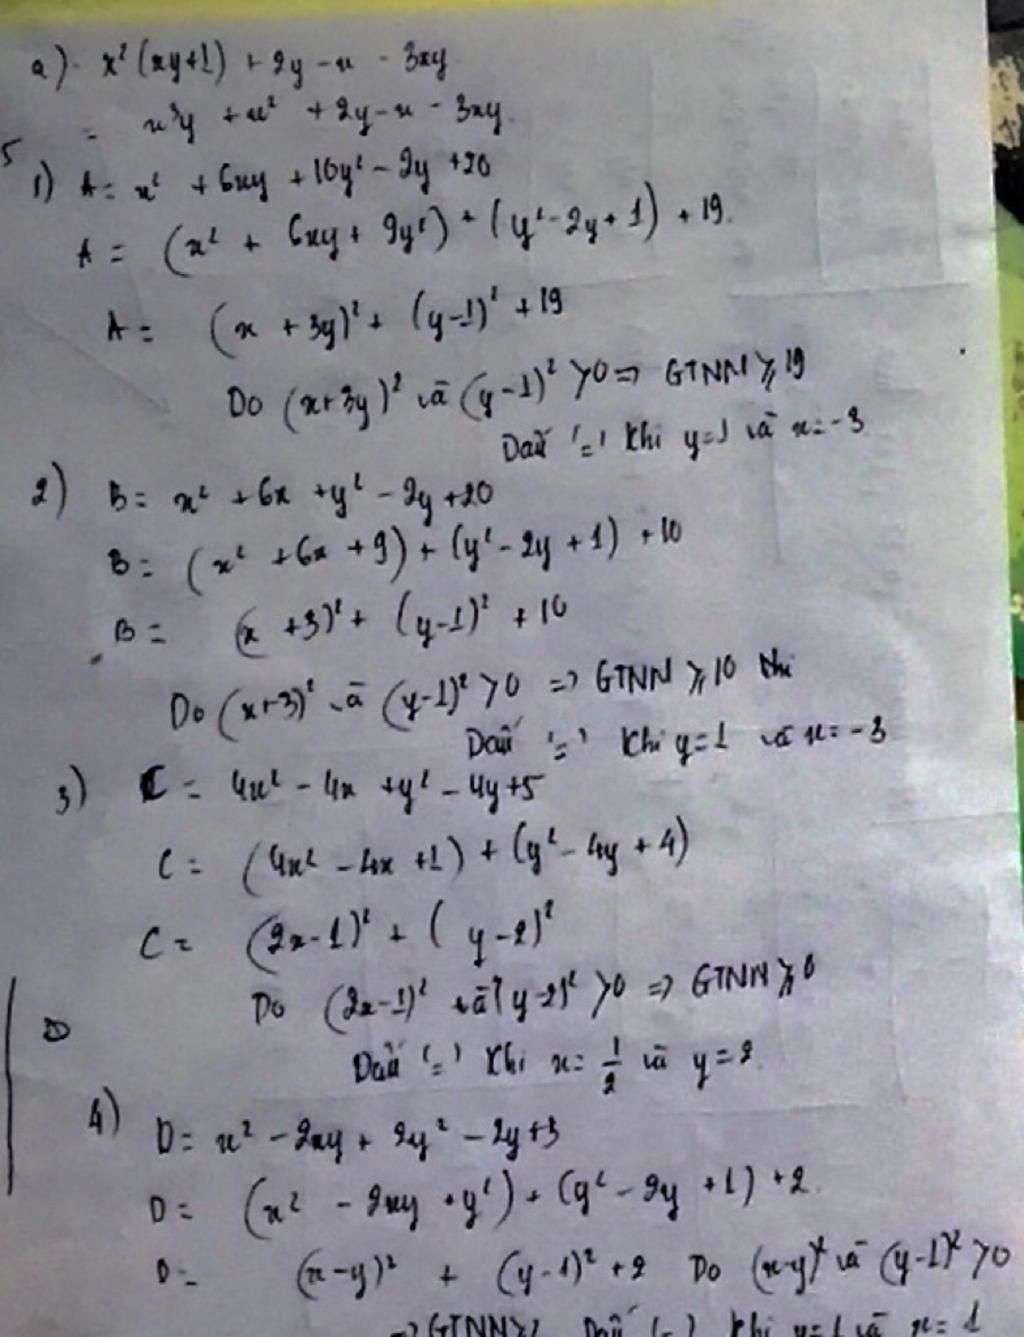 a) x²(xy+1) + 2y - x - 3xy
= x³y + x² + 2y - x - 3xy
5
1) A = x² + 6xy + 10y² - 2y + 20
A = (x² + 6xy + 9y²) + (y² - 2y + 1) + 19.
A = (x + 3y)² + (y-1)² + 19
Do (x+3y)² và (y-1)² >0 => GTNN ⩾ 19
Dấu '=' khi y=1 và x=-3
2) B = x² + 6x + y² - 2y + 20
B = (x² + 6x + 9) + (y² - 2y + 1) + 10
B = (x + 3)² + (y-1)² + 10
Do (x+3)² và (y-1)² >0 => GTNN ⩾ 10 khi
Dấu '=' khi y=1 và x=-3
3) C = 4x² - 4x + y² - 4y + 5
C = (4x² - 4x + 1) + (y² - 4y + 4)
C = (2x-1)² + (y-2)²
Do (2x-1)² và (y-2)² >0 => GTNN ⩾ 0
D
Dấu '=' khi x = 1/2 và y = 2.
4) D = x² - 2xy + 2y² - 2y + 3
D = (x² - 2xy + y²) + (y² - 2y + 1) + 2.
D = (x-y)² + (y-1)² + 2 Do (x-y)² và (y-1)² >0
=> GTNN ⩾ 2 Dấu '=' khi y=1 và x=1